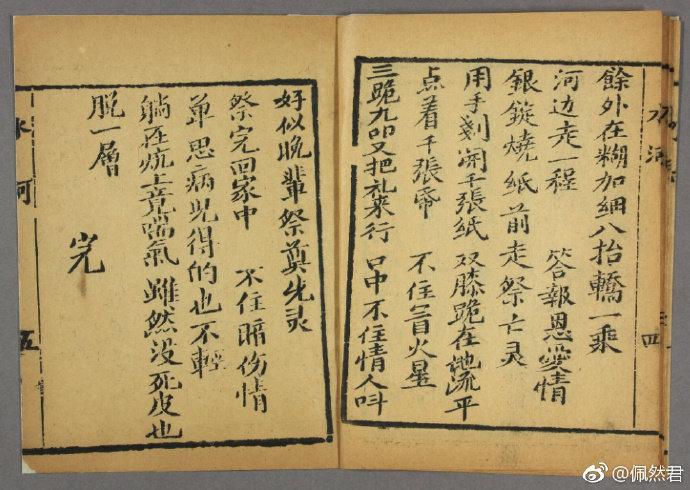 水河 四
餘外在糊加綢八抬轎一乘
河边走一程 答報恩愛情
銀錠燒紙前走祭亡灵
用手開千張紙 双膝跪在地流平
点着千張帋 不住冒火星
三跪九叩又把礼来行 口中不住情人呌
好似晚輩祭奠先灵
祭完回家中 不住暗伤情
单思病儿得的也不輕
躺在炕上竟喘氣 雖然没死皮也
脱一層 完
水河 五
@佩然君